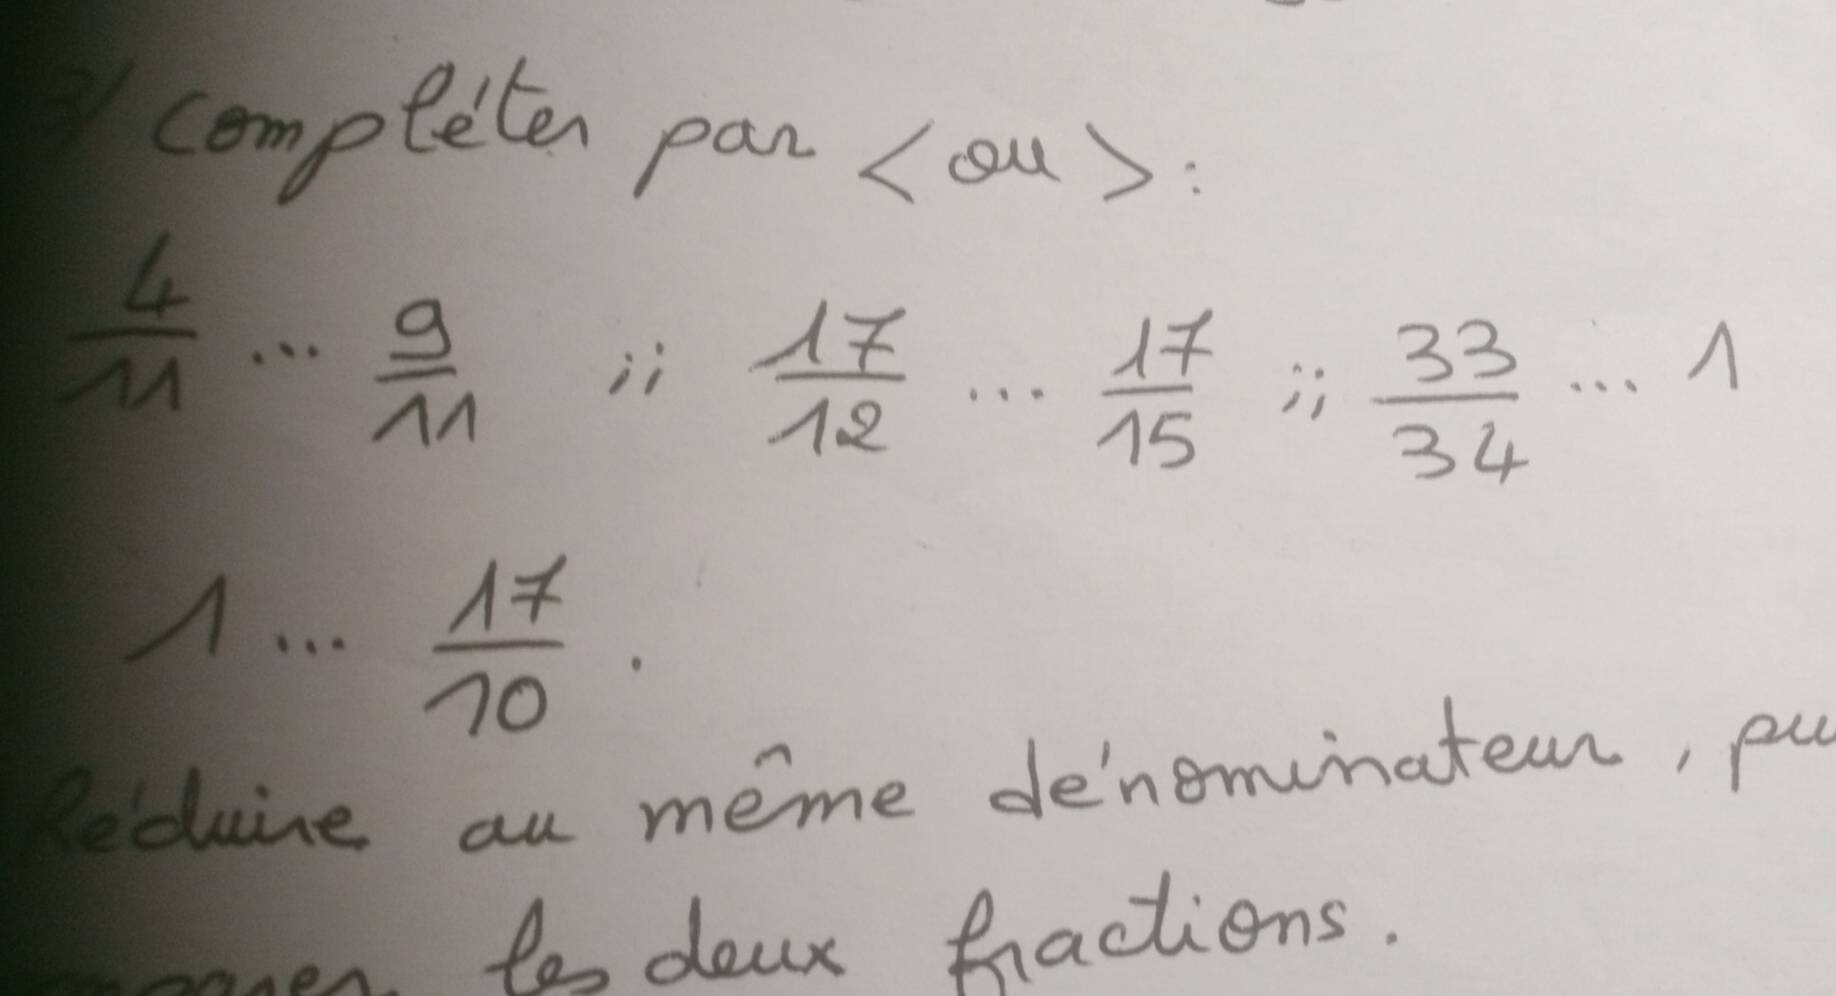 3/ Compléter par < ou > :
4/11 ... 9/11 ;; 17/12 ... 17/15 ;; 33/34 ... 1
1 ... 17/10 .
Réduire au même dénominateur,
les deux fractions.